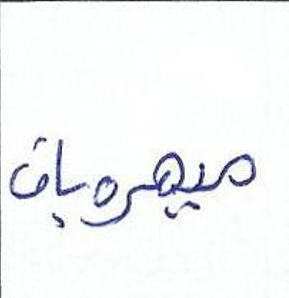 میهروبان